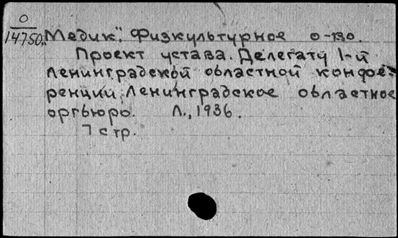 О
14750. „Медик". Физкультурное о-во.
Проект устава. Делегату 1-й
Ленинградской областной конфе-
ренции. Ленинградское областное
оргбюро. Л., 1936.
7 стр.